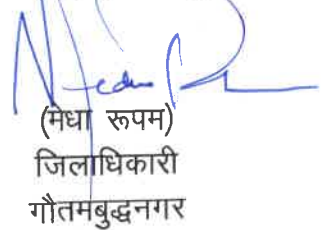 (मेधा रूपम)
जिलाधिकारी
गौतमबुद्धनगर